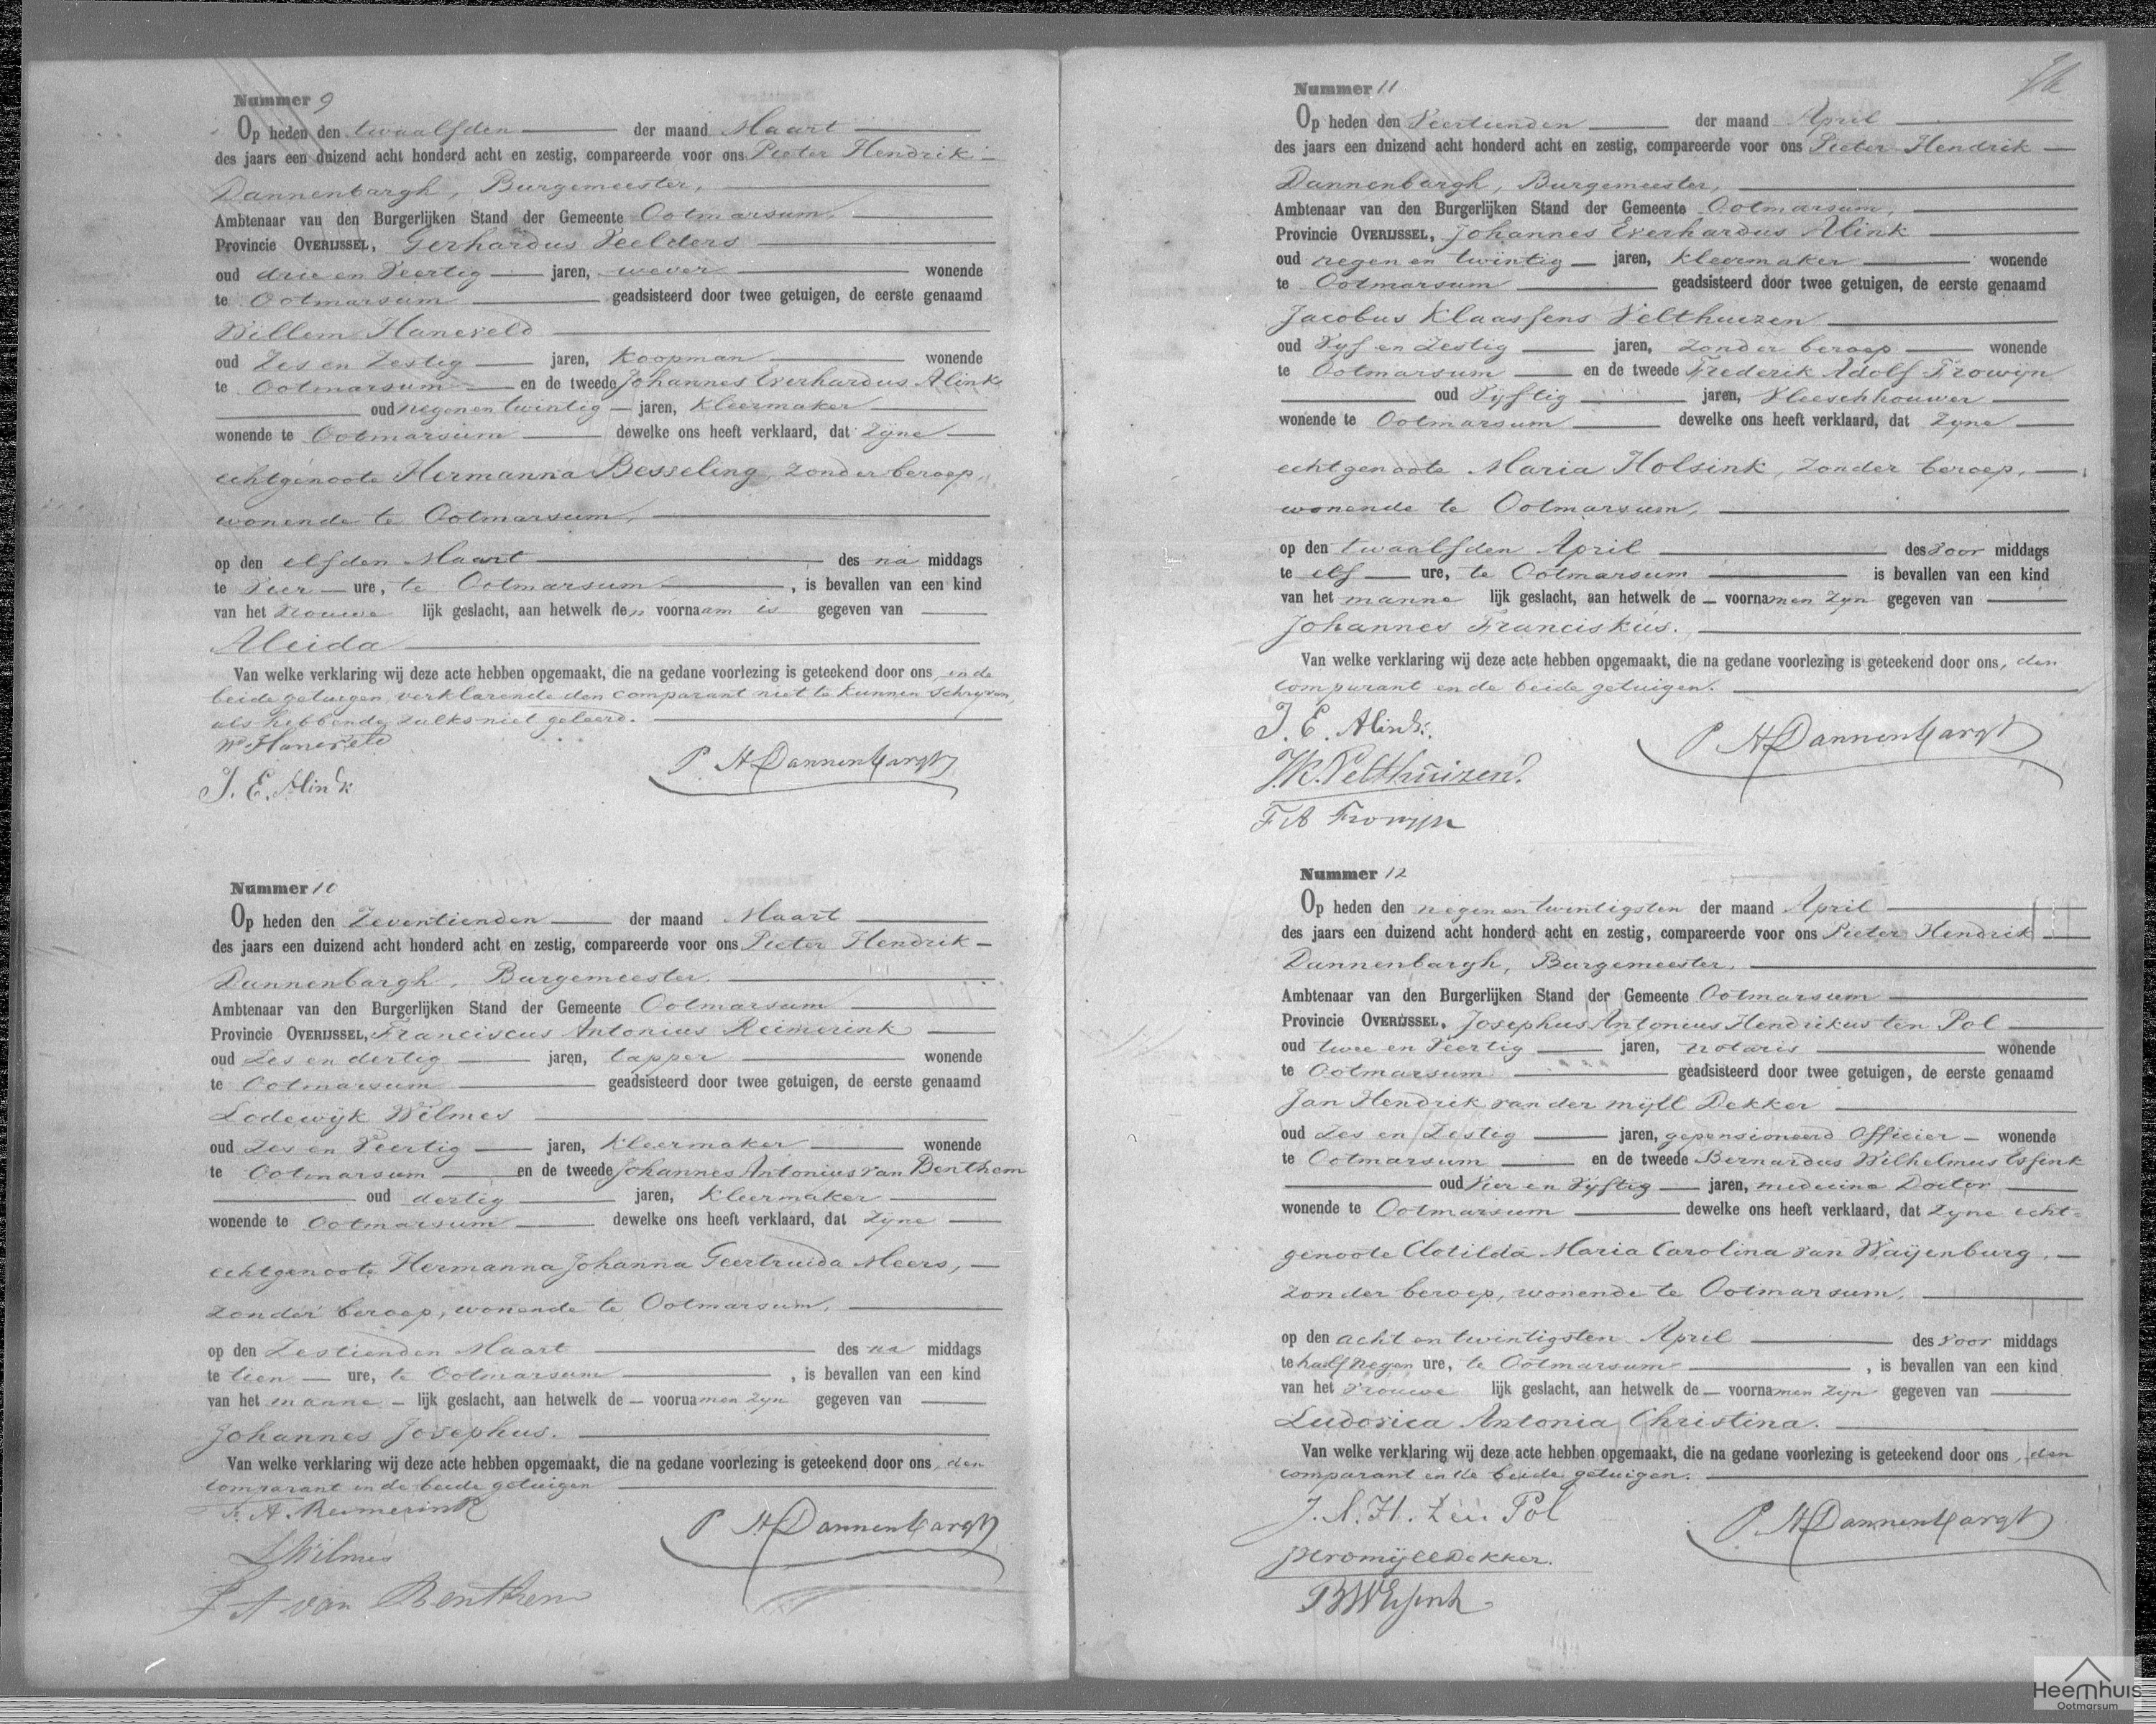 Nummer 9
Op heden den twaalfden der maand Maart
des jaars een duizend acht honderd acht en zestig, compareerde voor ons Pieter Hendrik
Dannenbargh, Burgemeester,
Ambtenaar van den Burgerlijken Stand der Gemeente Ootmarsum,
Provincie OVERIJSSEL, Gerhardus Veelders
oud drie en Veertig jaren, wever wonende
te Ootmarsum geadsisteerd door twee getuigen, de eerste genaamd
Willem Haneveld
oud Zes en Zestig jaren, Koopman wonende
te Ootmarsum en de tweede Johannes Everhardus Alink
oud negen en twintig jaren, Kleermaker
wonende te Ootmarsum dewelke ons heeft verklaard, dat Zyne
echtgenoote Hermanna Besseling, zonder beroep,
wonende te Ootmarsum,
op den elfden Maart des na middags
te Vier ure, te Ootmarsum, is bevallen van een kind
van het vrouwe lijk geslacht, aan hetwelk den voornaam is gegeven van
Aleida
Van welke verklaring wij deze acte hebben opgemaakt, die na gedane voorlezing is geteekend door ons en de
beide getuigen, verklarende den comparant niet te kunnen schryven,
als hebbende zulks niet geleerd.
Wm Haneveld
P H Dannenbargh
J. E. Alink
Nummer 10
Op heden den Zeventienden der maand Maart
des jaars een duizend acht honderd acht en zestig, compareerde voor ons Pieter Hendrik
Dannenbargh, Burgemeester,
Ambtenaar van den Burgerlijken Stand der Gemeente Ootmarsum
Provincie OVERIJSSEL, Franciscus Antonius Reimerink
oud Zes en dertig jaren, tapper wonende
te Ootmarsum geadsisteerd door twee getuigen, de eerste genaamd
Lodewijk Wilmes
oud Zes en Veertig jaren, Kleermaker wonende
te Ootmarsum en de tweede Johannes Antonius van Benthem
oud dertig jaren, Kleermaker
wonende te Ootmarsum dewelke ons heeft verklaard, dat Zyne
echtgenoote Hermanna Johanna Geertruida Meers,
zonder beroep, wonende te Ootmarsum,
op den Zestienden Maart des na middags
te tien ure, te Ootmarsum, is bevallen van een kind
van het manne lijk geslacht, aan hetwelk de voornamen zyn gegeven van
Johannes Josephus.
Van welke verklaring wij deze acte hebben opgemaakt, die na gedane voorlezing is geteekend door ons, den
comparant en de beide getuigen
F. A. Reimerink
P H Dannenbargh
L Wilmes
J A van Benthem
Nummer 11
Op heden den Veertienden der maand April
des jaars een duizend acht honderd acht en zestig, compareerde voor ons Pieter Hendrik
Dannenbargh, Burgemeester,
Ambtenaar van den Burgerlijken Stand der Gemeente Ootmarsum,
Provincie OVERIJSSEL, Johannes Everhardus Alink
oud negen en twintig jaren, Kleermaker wonende
te Ootmarsum geadsisteerd door twee getuigen, de eerste genaamd
Jacobus Klaassens Velthuizen
oud Vyf en Zestig jaren, zonder beroep wonende
te Ootmarsum en de tweede Frederik Adolf Frowyn
oud Vyftig jaren, Vleeschhouwer
wonende te Ootmarsum dewelke ons heeft verklaard, dat Zyne
echtgenoote Maria Holsink, zonder beroep,
wonende te Ootmarsum,
op den twaalfden April des voor middags
te elf ure, te Ootmarsum is bevallen van een kind
van het manne lijk geslacht, aan hetwelk de voornamen zyn gegeven van
Johannes Franciskus.
Van welke verklaring wij deze acte hebben opgemaakt, die na gedane voorlezing is geteekend door ons, den
comparant en de beide getuigen.
J. E. Alink.
P H Dannenbargh
J.K. Velthuizen
F A Frowyn
Nummer 12
Op heden den negen en twintigsten der maand April
des jaars een duizend acht honderd acht en zestig, compareerde voor ons Pieter Hendrik
Dannenbargh, Burgemeester,
Ambtenaar van den Burgerlijken Stand der Gemeente Ootmarsum
Provincie OVERIJSSEL, Josephus Antonius Hendrikus ten Pol
oud twee en Veertig jaren, notaris wonende
te Ootmarsum geadsisteerd door twee getuigen, de eerste genaamd
Jan Hendrik van der mÿll Dekker
oud Zes en Zestig jaren, gepensioneerd Officier wonende
te Ootmarsum en de tweede Bernardus Wilhelmus Essink
oud Vier en Vyftig jaren, medicina Doctor
wonende te Ootmarsum dewelke ons heeft verklaard, dat Zyne echt=
genoote Clotilda Maria Carolina van Waÿenburg,
zonder beroep, wonende te Ootmarsum,
op den acht en twintigsten April des voor middags
te half negen ure, te Ootmarsum, is bevallen van een kind
van het vrouwe lijk geslacht, aan hetwelk de voornamen zyn gegeven van
Ludovica Antonia Christina.
Van welke verklaring wij deze acte hebben opgemaakt, die na gedane voorlezing is geteekend door ons, den
comparant en de beide getuigen.
J. A. H. ten Pol
P H Dannenbargh
BW Essink
Heemhuis
Ootmarsum